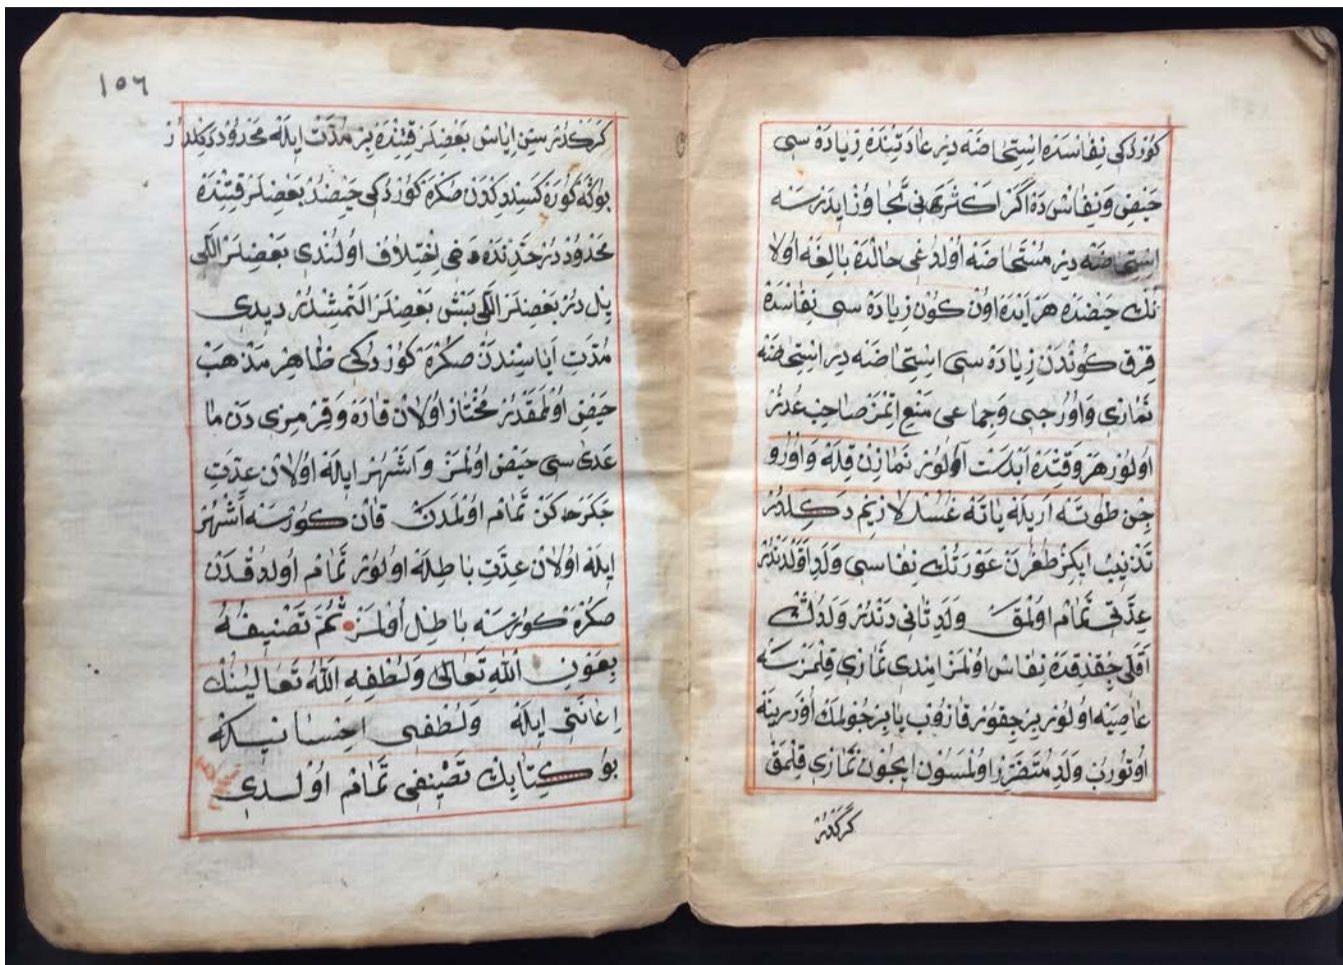 كوردكی نفاسده استحاضه در عادتنده زياده سی
حيض و نفاس ده اكر اكثرهنی تجاوز ايدرسه
استحاضه در مستحاضه اولدغی حالده بالغه اولا
نك حيضده هر آيده اون كون زياده سی نفاسده
قرق كوندن زياده سی استحاضه در استحاضه
نمازی واورجی وجماعی منع اتمز صاحب عدر
اولور هر وقتده ابدست آلور نمازن قله واورو
جن طوته اريله ياته غسل لازم دكلدر
تذنيب ايكز طغرن عورتك نفاسی ولد اولدندر
عدتی تمام اولمق ولد ثانی دندر ولدك
اقلی چقدقده نفاس اولمز امدی نمازی قلمزسه
عاصيه اولور بر چقور قازوب يا بر جولمك اوزرينه
اوتورب ولد متضرر اولمسون ايجون نمازی قلمق
كركدر
١٥٦
كركدر سن اياس بعضلر قتنده بر مدت ايله محدود دكلدر
بوكه كوره كسلدكدن صكره كوردكی حيضدر بعضلر قتنده
محدوددر حدنده دخی اختلاف اولندی بعضلر اللی
يل در بعضلر اللی بش بعضلر التمشدر ديدی
مدت اياسندن صكره كوردكی ظاهر مذهب
حيض اولمقدر مختار اولان قاره وقرمزی دن ما
عداسی حيض اولمز واشهر ايله اولان عدت
چكرحاكن تمام اولمدن قان كورسه اشهر
ايله اولان عدت باطله اولور تمام اولدقدن
صكره كورسه باطل اولمز تم تصنيفه
بعون الله تعالی ولطفه الله تعالينك
اعانتی ايله ولطفی احسانيله
بو كتابك تصنفی تمام اولدی